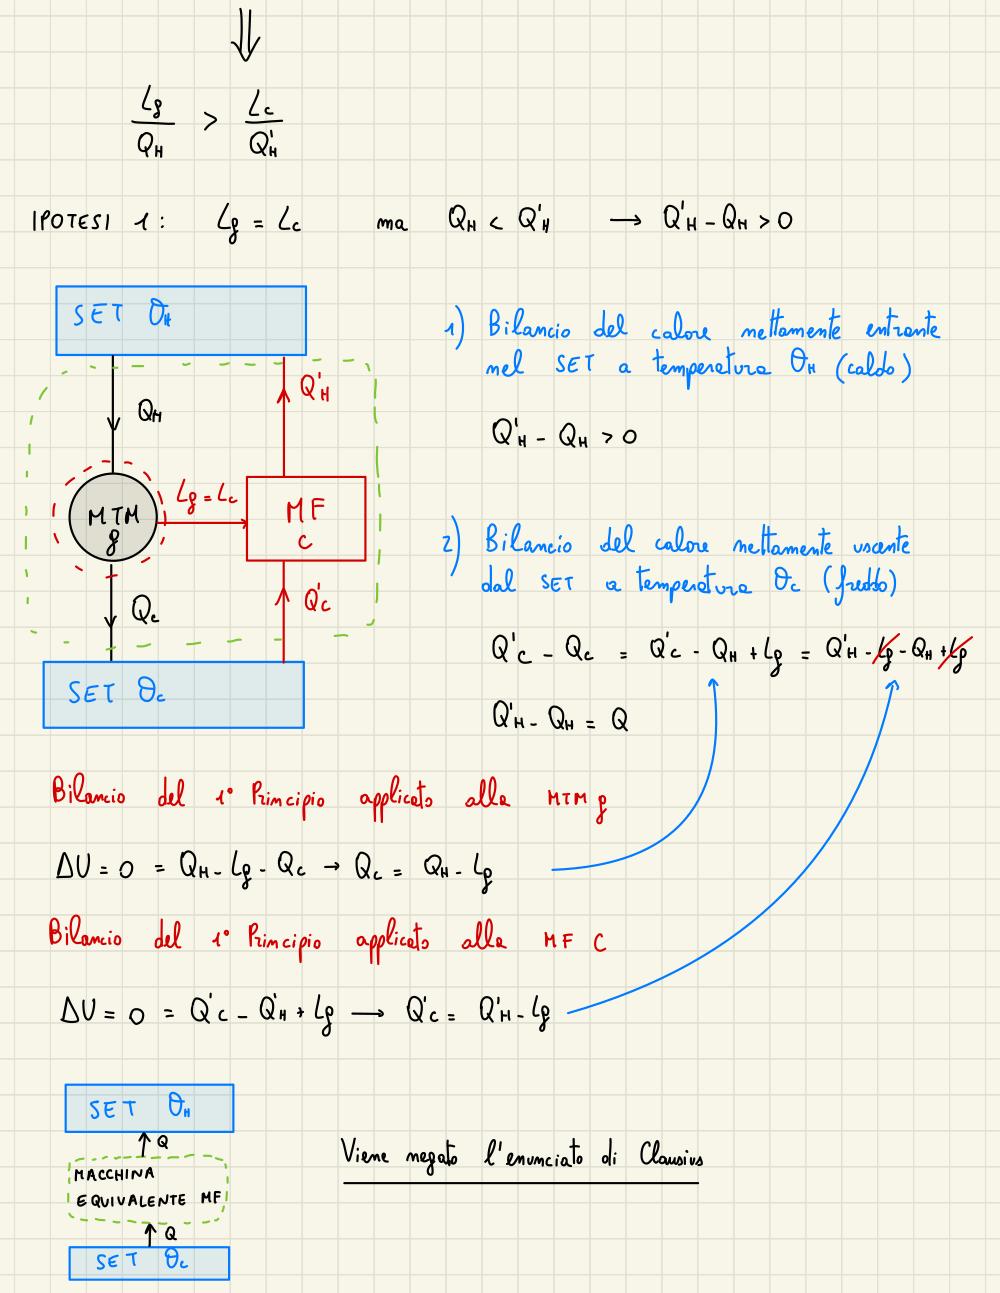 ⇓
L_g / Q_H > L_c / Q'_H
IPOTESI 1: L_g = L_c ma Q_H < Q'_H → Q'_H - Q_H > 0
SET θ_H
Q_H
Q'_H
MTM
g
L_g = L_c
MF
C
Q_c
Q'_c
SET θ_c
1) Bilancio del calore nettamente entrante
nel SET a temperatura θ_H (caldo)
Q'_H - Q_H > 0
2) Bilancio del calore nettamente uscente
dal SET a temperatura θ_c (freddo)
Q'_c - Q_c = Q'_c - Q_H + L_g = Q'_H - L_g - Q_H + L_g
Q'_H - Q_H = Q
Bilancio del 1° Principio applicato alla MTM g
ΔU = 0 = Q_H - L_g - Q_c → Q_c = Q_H - L_g
Bilancio del 1° Principio applicato alla MF C
ΔU = 0 = Q'_c - Q'_H + L_g → Q'_c = Q'_H - L_g
SET θ_H
Q
MACCHINA
EQUIVALENTE MF
Q
SET θ_c
Viene negato l'enunciato di Clausius